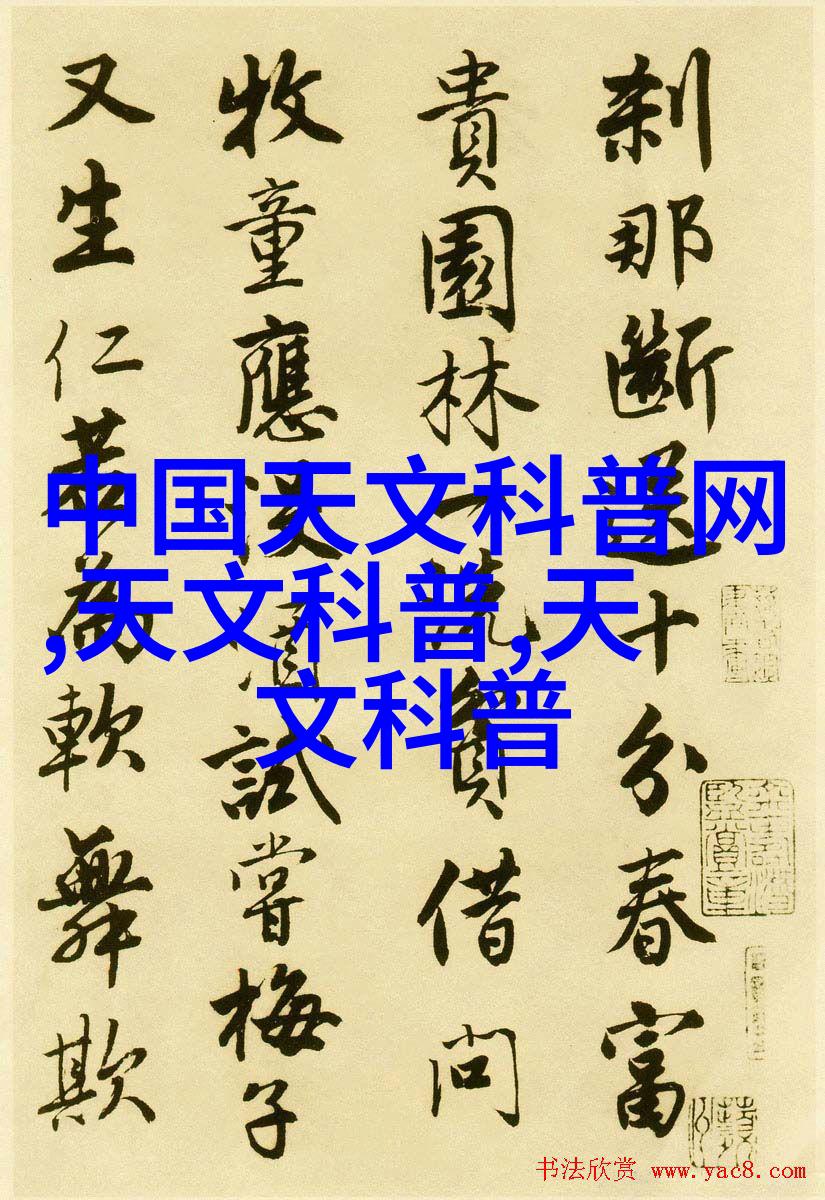 刹那斷送十分春富
貴園林一洗貧借問
牧童應沒酒試嘗梅子
又生仁若為軟舞欺
中国天文科普网
,天文科普,天
文科普
书法欣赏 www.yac8.com